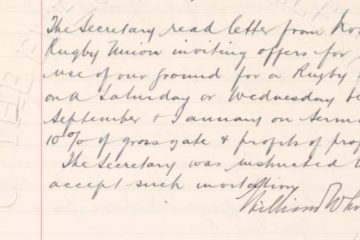 The Secretary read letter from
Rugby Union inviting offers for
use of our ground for a Rugby
on a Saturday or Wednesday
September & January on terms
10% of gross gate & profits of
The Secretary was instructed
accept such invitation
William